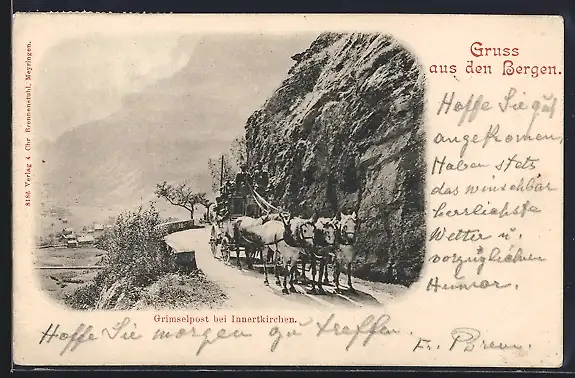 8186 Verlag v. Chr. Brennenstuhl, Meyringen.
Gruss
aus den Bergen.
Hoffe Sie gut
angekomen,
Haben stets
das winschbar
herrlichste
Wetter u.
vorzüglichen
Humor.
Grimselpost bei Innertkirchen.
Hoffe Sie morgen zu treffen.
Fr.